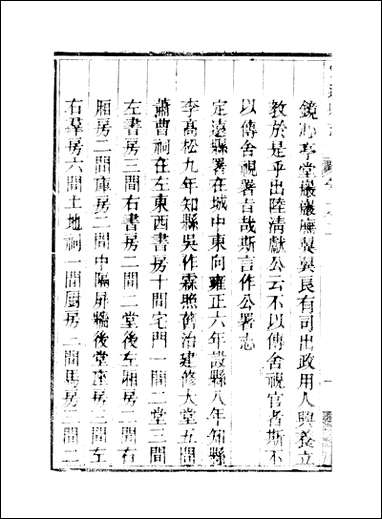 鏡心亭堂巖巖廡翼翼良有司出政用人興養立
教於是乎出陸清獻公云不以傳舍視官者斯不
以傳舍視署旨哉斯言作公署志
定遠縣署在城中東向雍正六年設縣八年知縣
李高松九年知縣吳作霖照舊治建修大堂五間
蕭曹祠在左東西書房十間宅門一間二堂三間
左書房三間右書房二間二堂後左廂房二間右
廂房二間庫房一間中隔屏牆後堂座房三間左
右羣房六間土地祠一間厨房二間馬房二間二